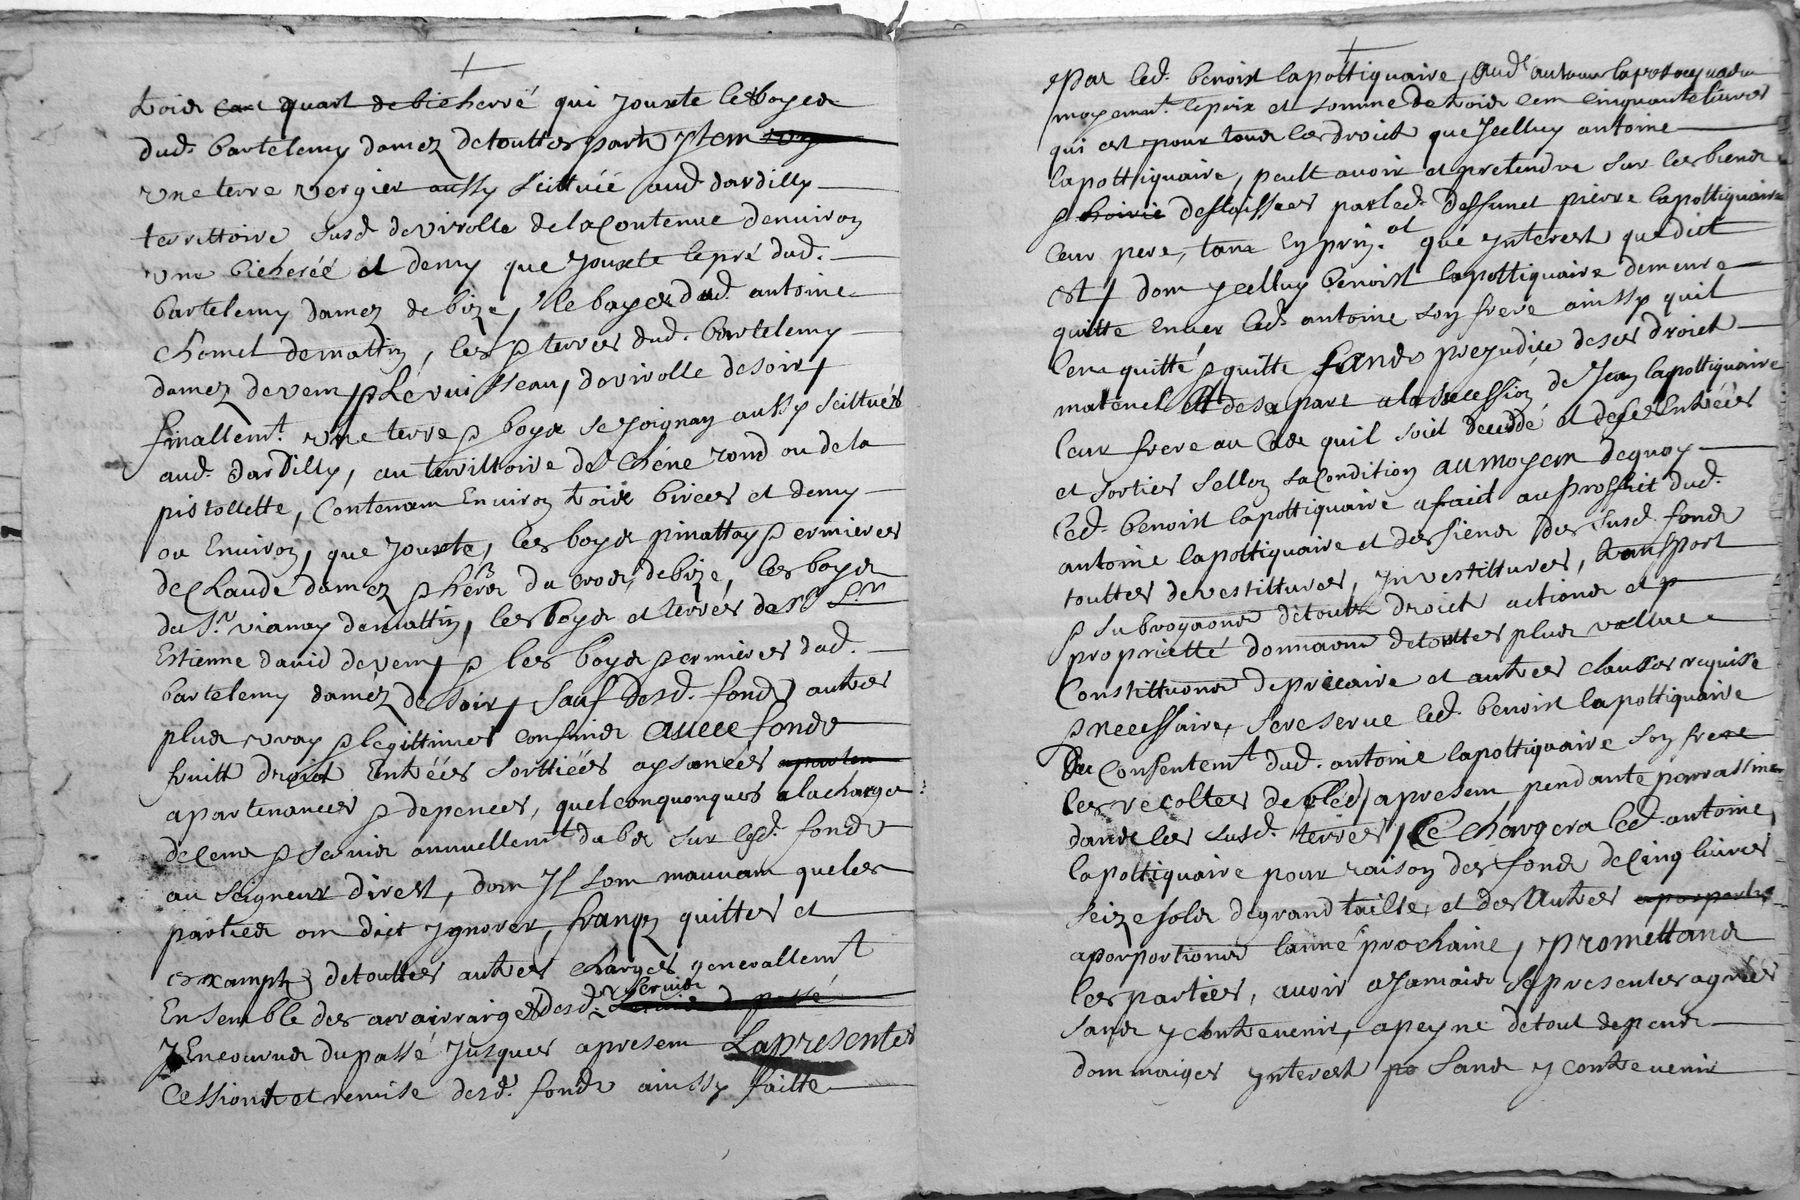 trois quart de bicherré qui jouxte les boyes
dud. bartelemy damez de touttes parts ytem
une terre vergier aussy scittuéé aud dardilly
territtoire susd de virolle de la contenue denviron
une bicheréé et demy que jouxte le pré dud.
bartelemy damez de bize, le boyes dud. antoine
chomel de mattin, les & terres dud. bartelemy
damez de vent, & le ruisseau, de virolle de soir,
finallemt. une terre & boys se joignan aussy scittués
aud. dardilly, au territtoire de chéne rond ou de la
pistollette, contenam environ trois birées et demy
ou environ, que jouxte, les boys pinattay & ermieres
de claude damez & hérs du crose, de bize, les boys
du Sr. vianay de mattin, les boys et terres de Sr
Estienne david de vent, & les boys & ermieres dud.
bartelemy daméz de soir, sauf desd. fonds autres
plus vray & legittimes confins avecc fonds
fruitt droict entréés sorttiéés aysances
apartenances & depences, quelconquonques a la charge
de cens & servis annuellemt dubs sur lesd. fonds
au seigneur direct, dom jl som mauvam que les
parties om dict ygnorer, franqz quittes et
exampts de touttes autres charges generallemt
Ensemble des arrairraiges desd. servis
Encourus du passé jusques apresem La presente
Cession et remise desd. fonds ainssy faitte
& par led. benoist lapottiquaire, aud. antoine lapottiquaire
moyennt. le prix et somme de trois cem cinquante livres
qui est pour tous les droict que jcelluy antoine
lapottiquaire, peult avoir et pretendre sur les biens
& hoirie deslaissées par led. deffunct pierre lapottiquaire
leur pere, tant en prinal que ynterest que dict
est, dom ycelluy benoist lapottiquaire demeure
quitte enver led. antoine son frere ainssy quil
len quitte & quitte sands prejudice de ses droict
maternel et de sa part a la sucession de Jean lapottiquaire
leur frere au cas quil soict decedé et de ses entréés
et sorties sellon sa condition au moyem de quoy
led. benoist lapottiquaire a faict au proffict dud.
antoine lapottiquaire et des siens des susd. fonds
touttes devestittures, jnvestittures, transport
& subrogaons de touts droict actions et &
proprietté donnaom de touttes plus vallue
Constittuons de précaire et autres clausses requisse
& necessaire, se reserve led. benoist lapottiquaire
Du consentemt dud. antoine lapottiquaire son frere
les recoltes de bled, apresem pendante par rassine
dans les susd. terres, se chargera led. antoine
lapottiquaire pour raison des fonds de cinq livres
seize sols de grand taille, et des autres
aporportions lanné prochaine, promettans
les parties, avoir a jamais la presentes agréé
sans y contrevenir, a peyne de tout depens
dommaiges ynterest sans y contrevenir